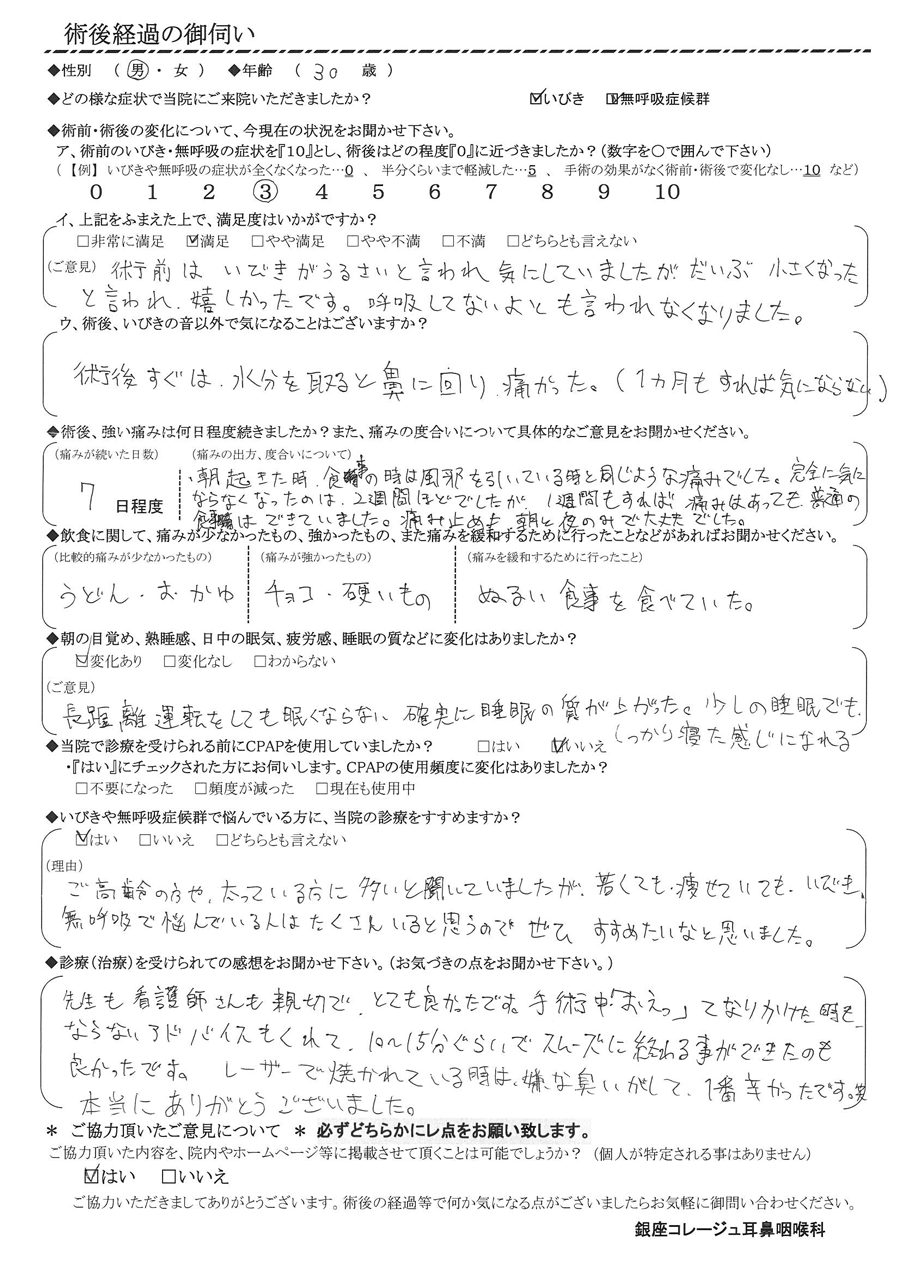 術後経過の御伺い
◆性別 （ 男 ・ 女 ） ◆年齢 （ 30 歳 ）
◆どの様な症状で当院にご来院いただきましたか？ ☑いびき ☑無呼吸症候群
◆術前・術後の変化について、今現在の状況をお聞かせ下さい。
ア、術前のいびき・無呼吸の症状を『10』とし、術後はどの程度『0』に近づきましたか？（数字を〇で囲んで下さい）
（【例】 いびきや無呼吸の症状が全くなくなった…0 、 半分くらいまで軽減した…5 、 手術の効果がなく術前・術後で変化なし…10 など）
0 1 2 ③ 4 5 6 7 8 9 10
イ、上記をふまえた上で、満足度はいかがですか？
□非常に満足 ☑満足 □やや満足 □やや不満 □不満 □どちらとも言えない
（ご意見） 術前は いびきがうるさいと言われ 気にしていましたが だいぶ 小さくなった
と言われ、嬉しかったです。呼吸してないよとも言われなくなりました。
ウ、術後、いびきの音以外で気になることはございますか？
術後すぐは、水分を取ると鼻に回り、痛かった。（1カ月もすれば気にならない）
◆術後、強い痛みは何日程度続きましたか？また、痛みの度合いについて具体的なご意見をお聞かせください。
（痛みが続いた日数） （痛みの出方、度合いについて）
7 日程度
・朝起きた時、食事の時は風邪を引いている時と同じような痛みでした。完全に気に
ならなくなったのは、2週間ほどでしたが、1週間もすれば 痛みはあっても 普通の
食事はできていました。痛み止めも、朝と夜のみで大丈夫でした。
◆飲食に関して、痛みが少なかったもの、強かったもの、また痛みを緩和するために行ったことなどがあればお聞かせください。
（比較的痛みが少なかったもの） （痛みが強かったもの） （痛みを緩和するために行ったこと）
うどん・おかゆ チョコ・硬いもの ぬるい食事を食べていた。
◆朝の目覚め、熟睡感、日中の眠気、疲労感、睡眠の質などに変化はありましたか？
☑変化あり □変化なし □わからない
（ご意見）
長距離運転をしても眠くならない 確実に睡眠の質が上がった。少しの睡眠でも、
しっかり寝た感じになれる
◆当院で診療を受けられる前にCPAPを使用していましたか？ □はい ☑いいえ
・『はい』にチェックされた方にお伺いします。CPAPの使用頻度に変化はありましたか？
□不要になった □頻度が減った □現在も使用中
◆いびきや無呼吸症候群で悩んでいる方に、当院の診療をすすめますか？
☑はい □いいえ □どちらとも言えない
（理由）
ご高齢の方や、太っている方に多いと聞いていましたが、若くても・痩せていても・いびき、
無呼吸で悩んでいる人はたくさんいると思うので ぜひ すすめたいなと思いました。
◆診療（治療）を受けられての感想をお聞かせ下さい。（お気づきの点をお聞かせ下さい。）
先生も看護師さんも親切で、とても良かったです。手術中「おえっ」てなりかけた時も
ならないアドバイスもくれて、10～15分ぐらいでスムーズに終わる事ができたのも
良かったです。 レーザーで焼かれている時は、嫌な臭いがして、1番辛かったです。笑
本当にありがとうございました。
＊ ご協力頂いたご意見について ＊ 必ずどちらかにレ点をお願い致します。
ご協力頂いた内容を、院内やホームページ等に掲載させて頂くことは可能でしょうか？ （個人が特定される事はありません）
☑はい □いいえ
ご協力いただきましてありがとうございます。術後の経過等で何か気になる点がございましたらお気軽に御問い合わせください。
銀座コレージュ耳鼻咽喉科